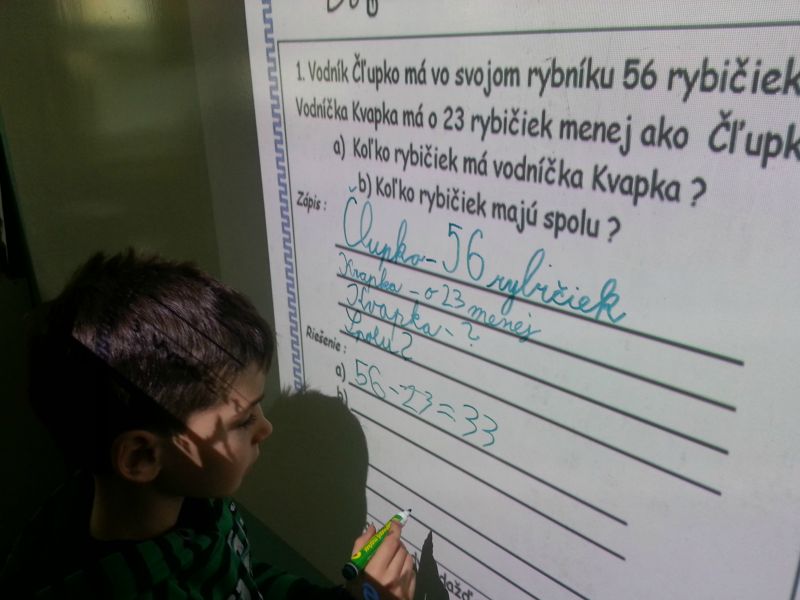 1. Vodník Čľupko má vo svojom rybníku 56 rybičiek
Vodníčka Kvapka má o 23 rybičiek menej ako Čľupk
a) Koľko rybičiek má vodníčka Kvapka ?
b) Koľko rybičiek majú spolu ?
Zápis :
Člupko - 56 rybičiek
Kvapka - o 23 menej
Kvapka - ?
Spolu ?
Riešenie :
a) 56 - 23 = 33
b)